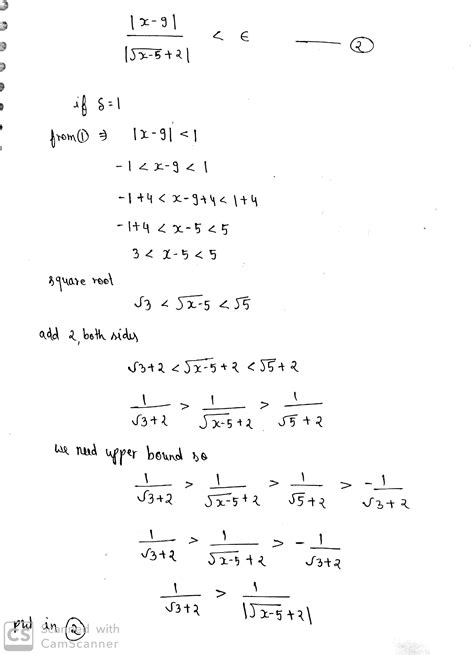 |x-9| / |√x-5 + 2| < ϵ —— ②
if δ=1
from① ⇒ |x-9| <1
-1 < x-9 < 1
-1+4 < x-9+4 < 1+4
-1+4 < x-5 < 5
3 < x-5 < 5
square root
√3 < √x-5 < √5
add 2, both sides
√3+2 < √x-5 + 2 < √5 + 2
1/√3+2 > 1/√x-5+2 > 1/√5+2
we need upper bound so
1/√3+2 > 1/√x-5+2 > 1/√5+2 > -1/√3+2
1/√3+2 > 1/√x-5+2 > -1/√3+2
1/√3+2 > 1/|√x-5+2|
put in ②
CS Scanned with
CamScanner